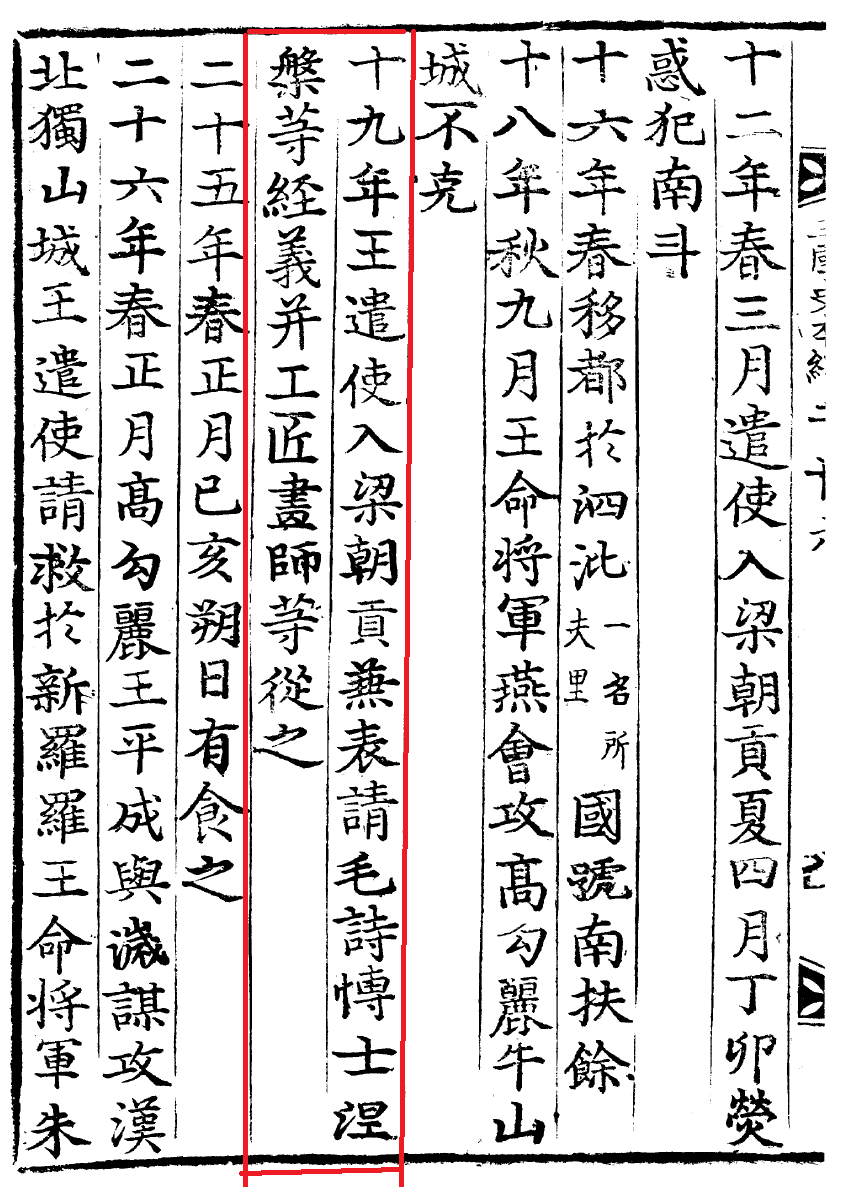 十二年春三月遣使入梁朝貢夏四月丁卯熒
惑犯南斗
十六年春移都於泗沘一名所夫里國號南扶餘
十八年秋九月王命将軍燕會攻髙勾麗牛山
城不克
十九年王遣使入梁朝貢兼表請毛詩愽士涅
槃等経義并工匠畫師等從之
二十五年春正月己亥朔日有食之
二十六年春正月髙勾麗王平成與濊謀攻漢
北獨山城王遣使請救於新羅羅王命将軍朱